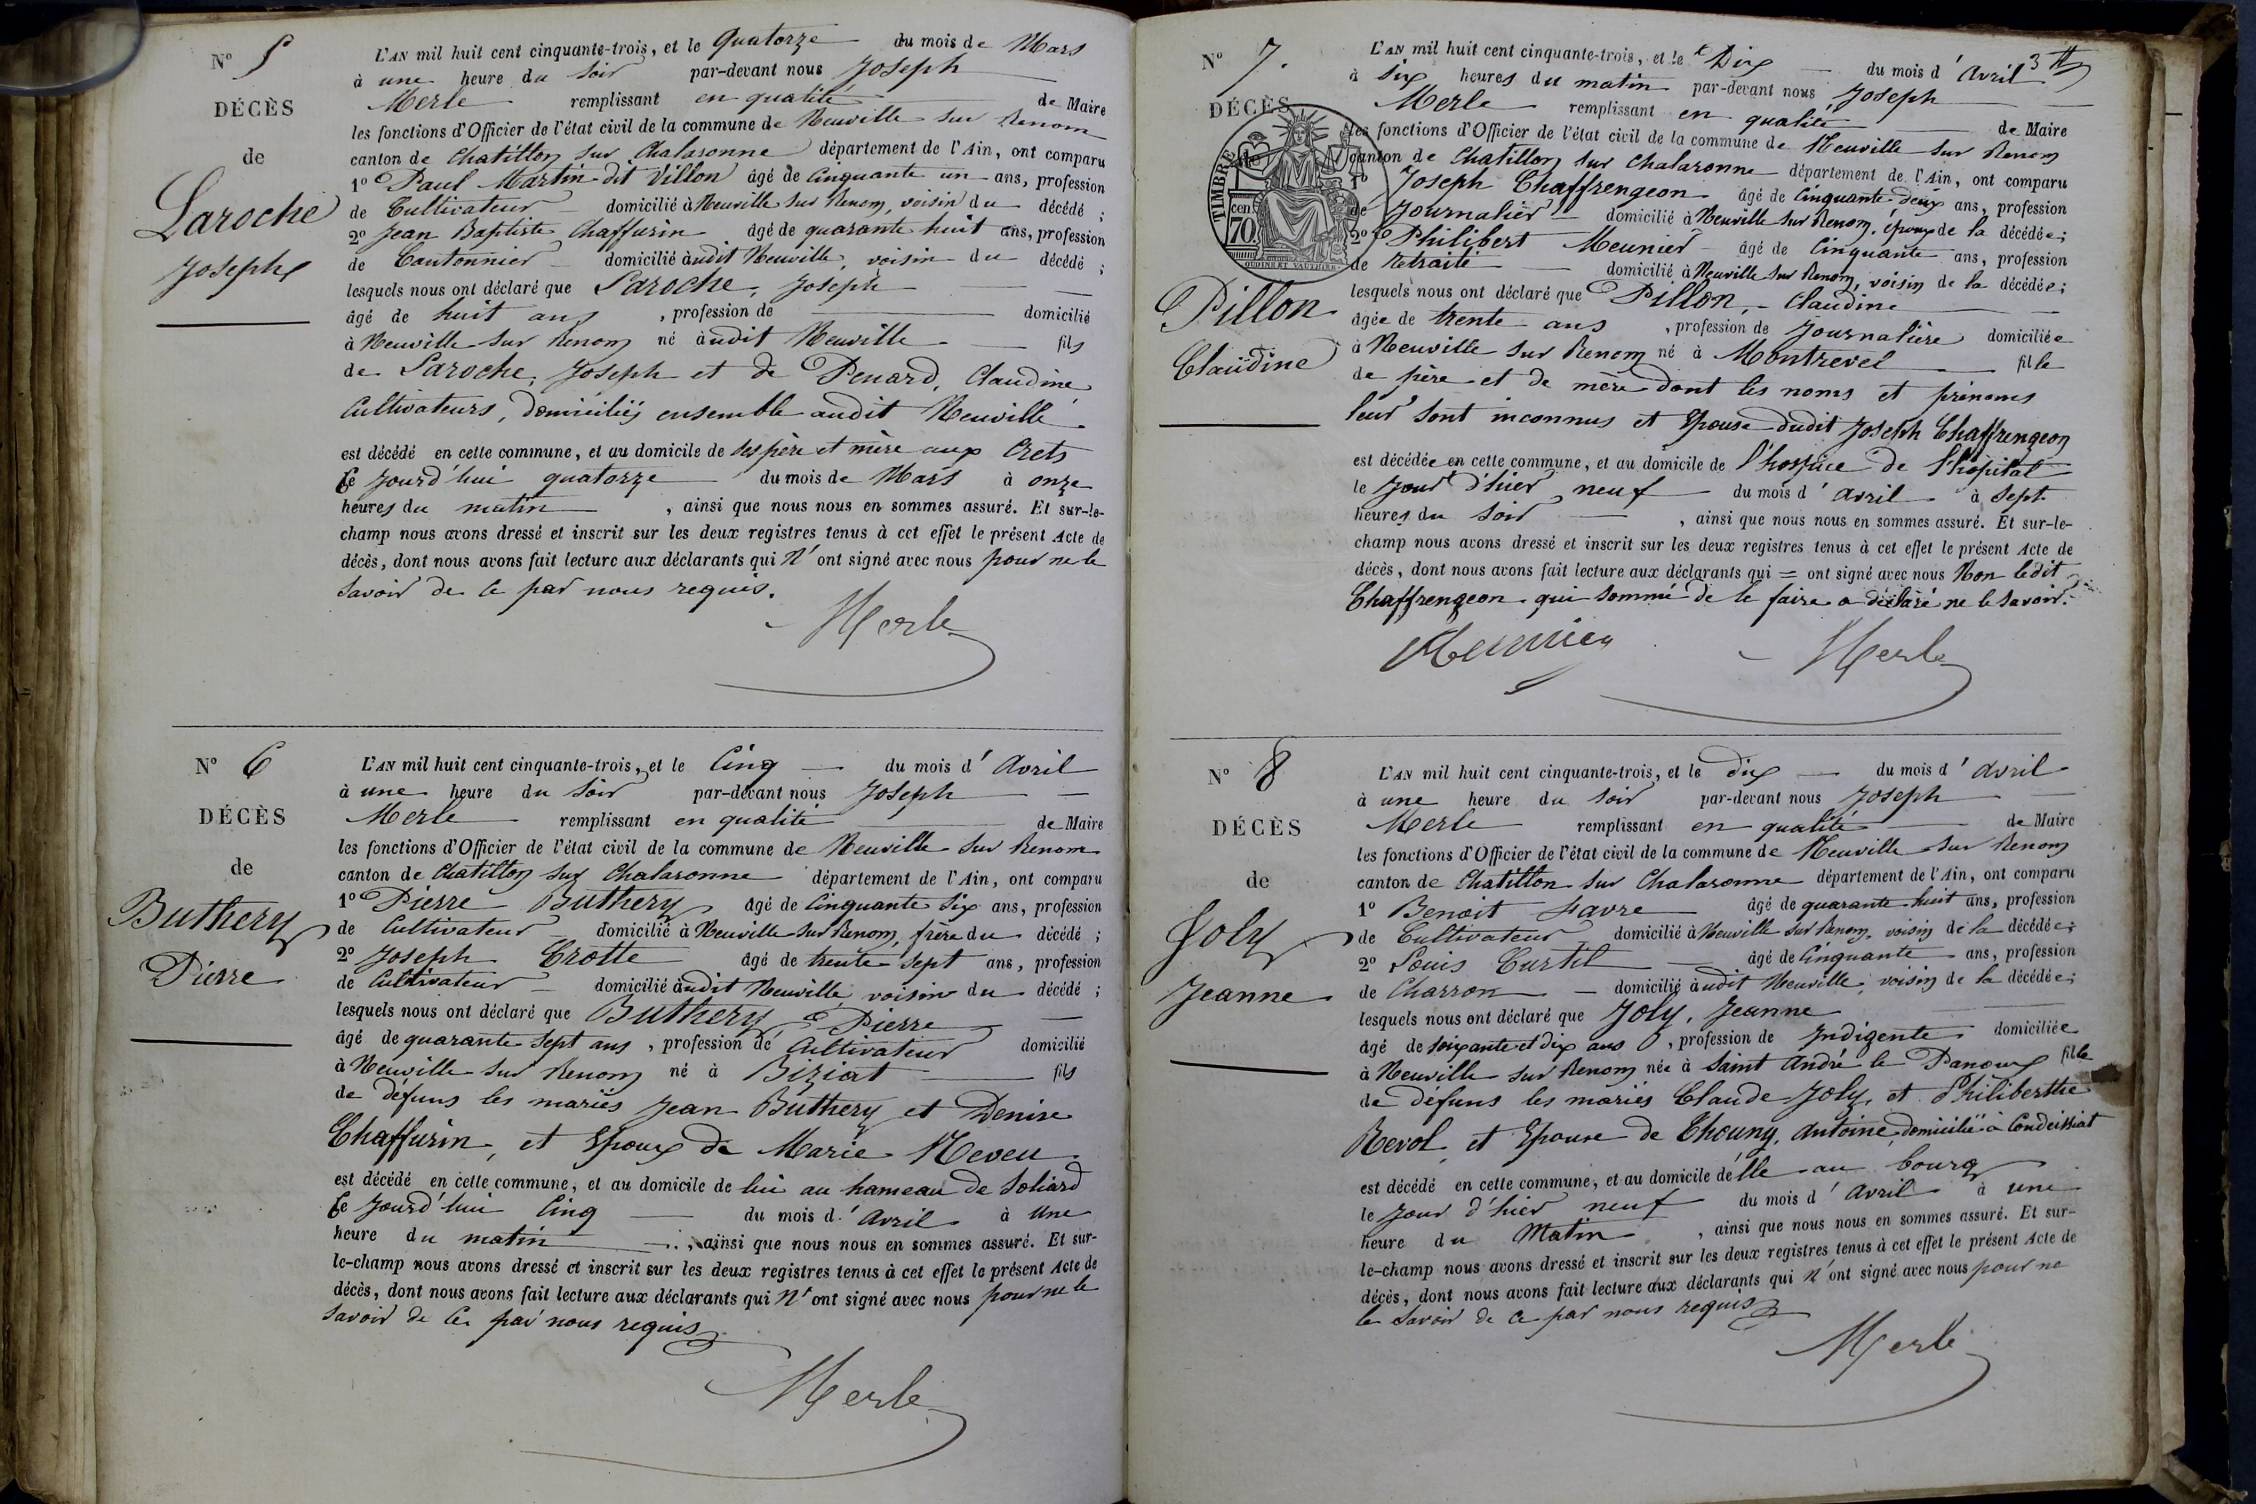 Nº 5
DÉCÈS
de
Laroche
Joseph
L'AN mil huit cent cinquante-trois, et le Quatorze du mois de Mars
à une heure du soir par-devant nous Joseph
Merle remplissant en qualité de Maire
les fonctions d'Officier de l'état civil de la commune de Neuville sur Renom
canton de Chatillon sur Chalaronne département de l'Ain, ont comparu
1º Paul Martin dit Villon âgé de Cinquante un ans, profession
de Cultivateur domicilié à Neuville sur Renom, voisin du décédé ;
2º Jean Baptiste Chaffurin âgé de quarante huit ans, profession
de Cantonnier domicilié àudit Neuville, voisin du décédé ;
lesquels nous ont déclaré que Laroche, Joseph
âgé de huit ans , profession de domicilié
à Neuville sur Renom né àudit Neuville fils
de Laroche, Joseph et de Penard, Claudine
Cultivateurs, domiciliés ensemble audit Neuville.
est décédé en cette commune, et au domicile de ses père et mère aux Crets
Ce jourd'hui quatorze du mois de Mars à onze
heures du matin , ainsi que nous nous en sommes assuré. Et sur-le-
champ nous avons dressé et inscrit sur les deux registres tenus à cet effet le présent Acte de
décès, dont nous avons fait lecture aux déclarants qui N' ont signé avec nous pour ne le
savoir de ce par nous requis.
Merle
Nº 6
DÉCÈS
de
Buthery
Pierre
L'AN mil huit cent cinquante-trois, et le Cinq du mois d' Avril
à une heure du soir par-devant nous Joseph
Merle remplissant en qualité de Maire
les fonctions d'Officier de l'état civil de la commune de Neuville sur Renom
canton de Chatillon sur Chalaronne département de l'Ain, ont comparu
1º Pierre Buthery âgé de Cinquante six ans, profession
de Cultivateur domicilié à Neuville sur Renom, frère du décédé ;
2º Joseph Crotte âgé de trente sept ans, profession
de Cultivateur domicilié àudit Neuville voisin du décédé ;
lesquels nous ont déclaré que Buthery Pierre
âgé de quarante sept ans , profession de Cultivateur domicilié
à Neuville sur Renom né à Biziat fils
de défuns les mariés Jean Buthery et Denise
Chaffurin, et Epoux de Marie Neveu
est décédé en cette commune, et au domicile de lui au hameau de Soliard
Ce Jourd'hui Cinq du mois d' Avril à Une
heure du matin , ainsi que nous nous en sommes assuré. Et sur-
le-champ nous avons dressé et inscrit sur les deux registres tenus à cet effet le présent Acte de
décès, dont nous avons fait lecture aux déclarants qui N' ont signé avec nous pour ne le
savoir de ce par nous requis
Merle
3
Nº 7.
DÉCÈS
de
Pillon
Claudine
TIMBRE
cen
70
OUDINÉ ET VAUTHIER
L'AN mil huit cent cinquante-trois, et le Dix du mois d' Avril
à six heures du matin par-devant nous Joseph
Merle remplissant en qualité de Maire
les fonctions d'Officier de l'état civil de la commune de Neuville sur Renom
canton de Chatillon sur Chalaronne département de l'Ain, ont comparu
1º Joseph Chaffrengeon âgé de Cinquante deux ans, profession
de Journalier domicilié à Neuville sur Renom, époux de la décédée ;
2º Philibert Meunier âgé de Cinquante ans, profession
de retraité domicilié à Neuville sur Renom, voisin de la décédée ;
lesquels nous ont déclaré que Pillon, Claudine
âgée de trente ans , profession de Journalière domiciliée
à Neuville sur Renom né à Montrevel fille
de père et de mère dont les noms et prénoms
leur sont inconnus et Epouse dudit Joseph Chaffrengeon
est décédée en cette commune, et au domicile de l'hospice de l'hopital
le jour d'hier neuf du mois d' avril à sept
heures du soir , ainsi que nous nous en sommes assuré. Et sur-le-
champ nous avons dressé et inscrit sur les deux registres tenus à cet effet le présent Acte de
décès, dont nous avons fait lecture aux déclarants qui = ont signé avec nous Non ledit
Chaffrengeon qui sommé de le faire a déclaré ne le savoir.
Meunier
Merle
Nº 8
DÉCÈS
de
Joly
Jeanne
L'AN mil huit cent cinquante-trois, et le dix du mois d' avril
à une heure du soir par-devant nous Joseph
Merle remplissant en qualité de Maire
les fonctions d'Officier de l'état civil de la commune de Neuville sur Renom
canton de Chatillon sur Chalaronne département de l'Ain, ont comparu
1º Benoit Favre âgé de quarante huit ans, profession
de Cultivateur domicilié à Neuville sur Renom, voisin de la décédée ;
2º Louis Curtil âgé de Cinquante ans, profession
de Charron domicilié àudit Neuville, voisin de la décédée ;
lesquels nous ont déclaré que Joly, Jeanne
âgé de soixante et dix ans , profession de Indigente domiciliée
à Neuville sur Renom née à Saint André le Panoux fille
de défuns les mariés Claude Joly, et Philiberthe
Revol, et Epouse de Thoung, Antoine, domicilié à Condeissiat
est décédé en cette commune, et au domicile d'elle au bourg
le jour d'hier neuf du mois d' avril à une
heure du Matin , ainsi que nous nous en sommes assuré. Et sur-
le-champ nous avons dressé et inscrit sur les deux registres tenus à cet effet le présent Acte de
décès, dont nous avons fait lecture aux déclarants qui N' ont signé avec nous pour ne
le savoir de ce par nous requis
Merle